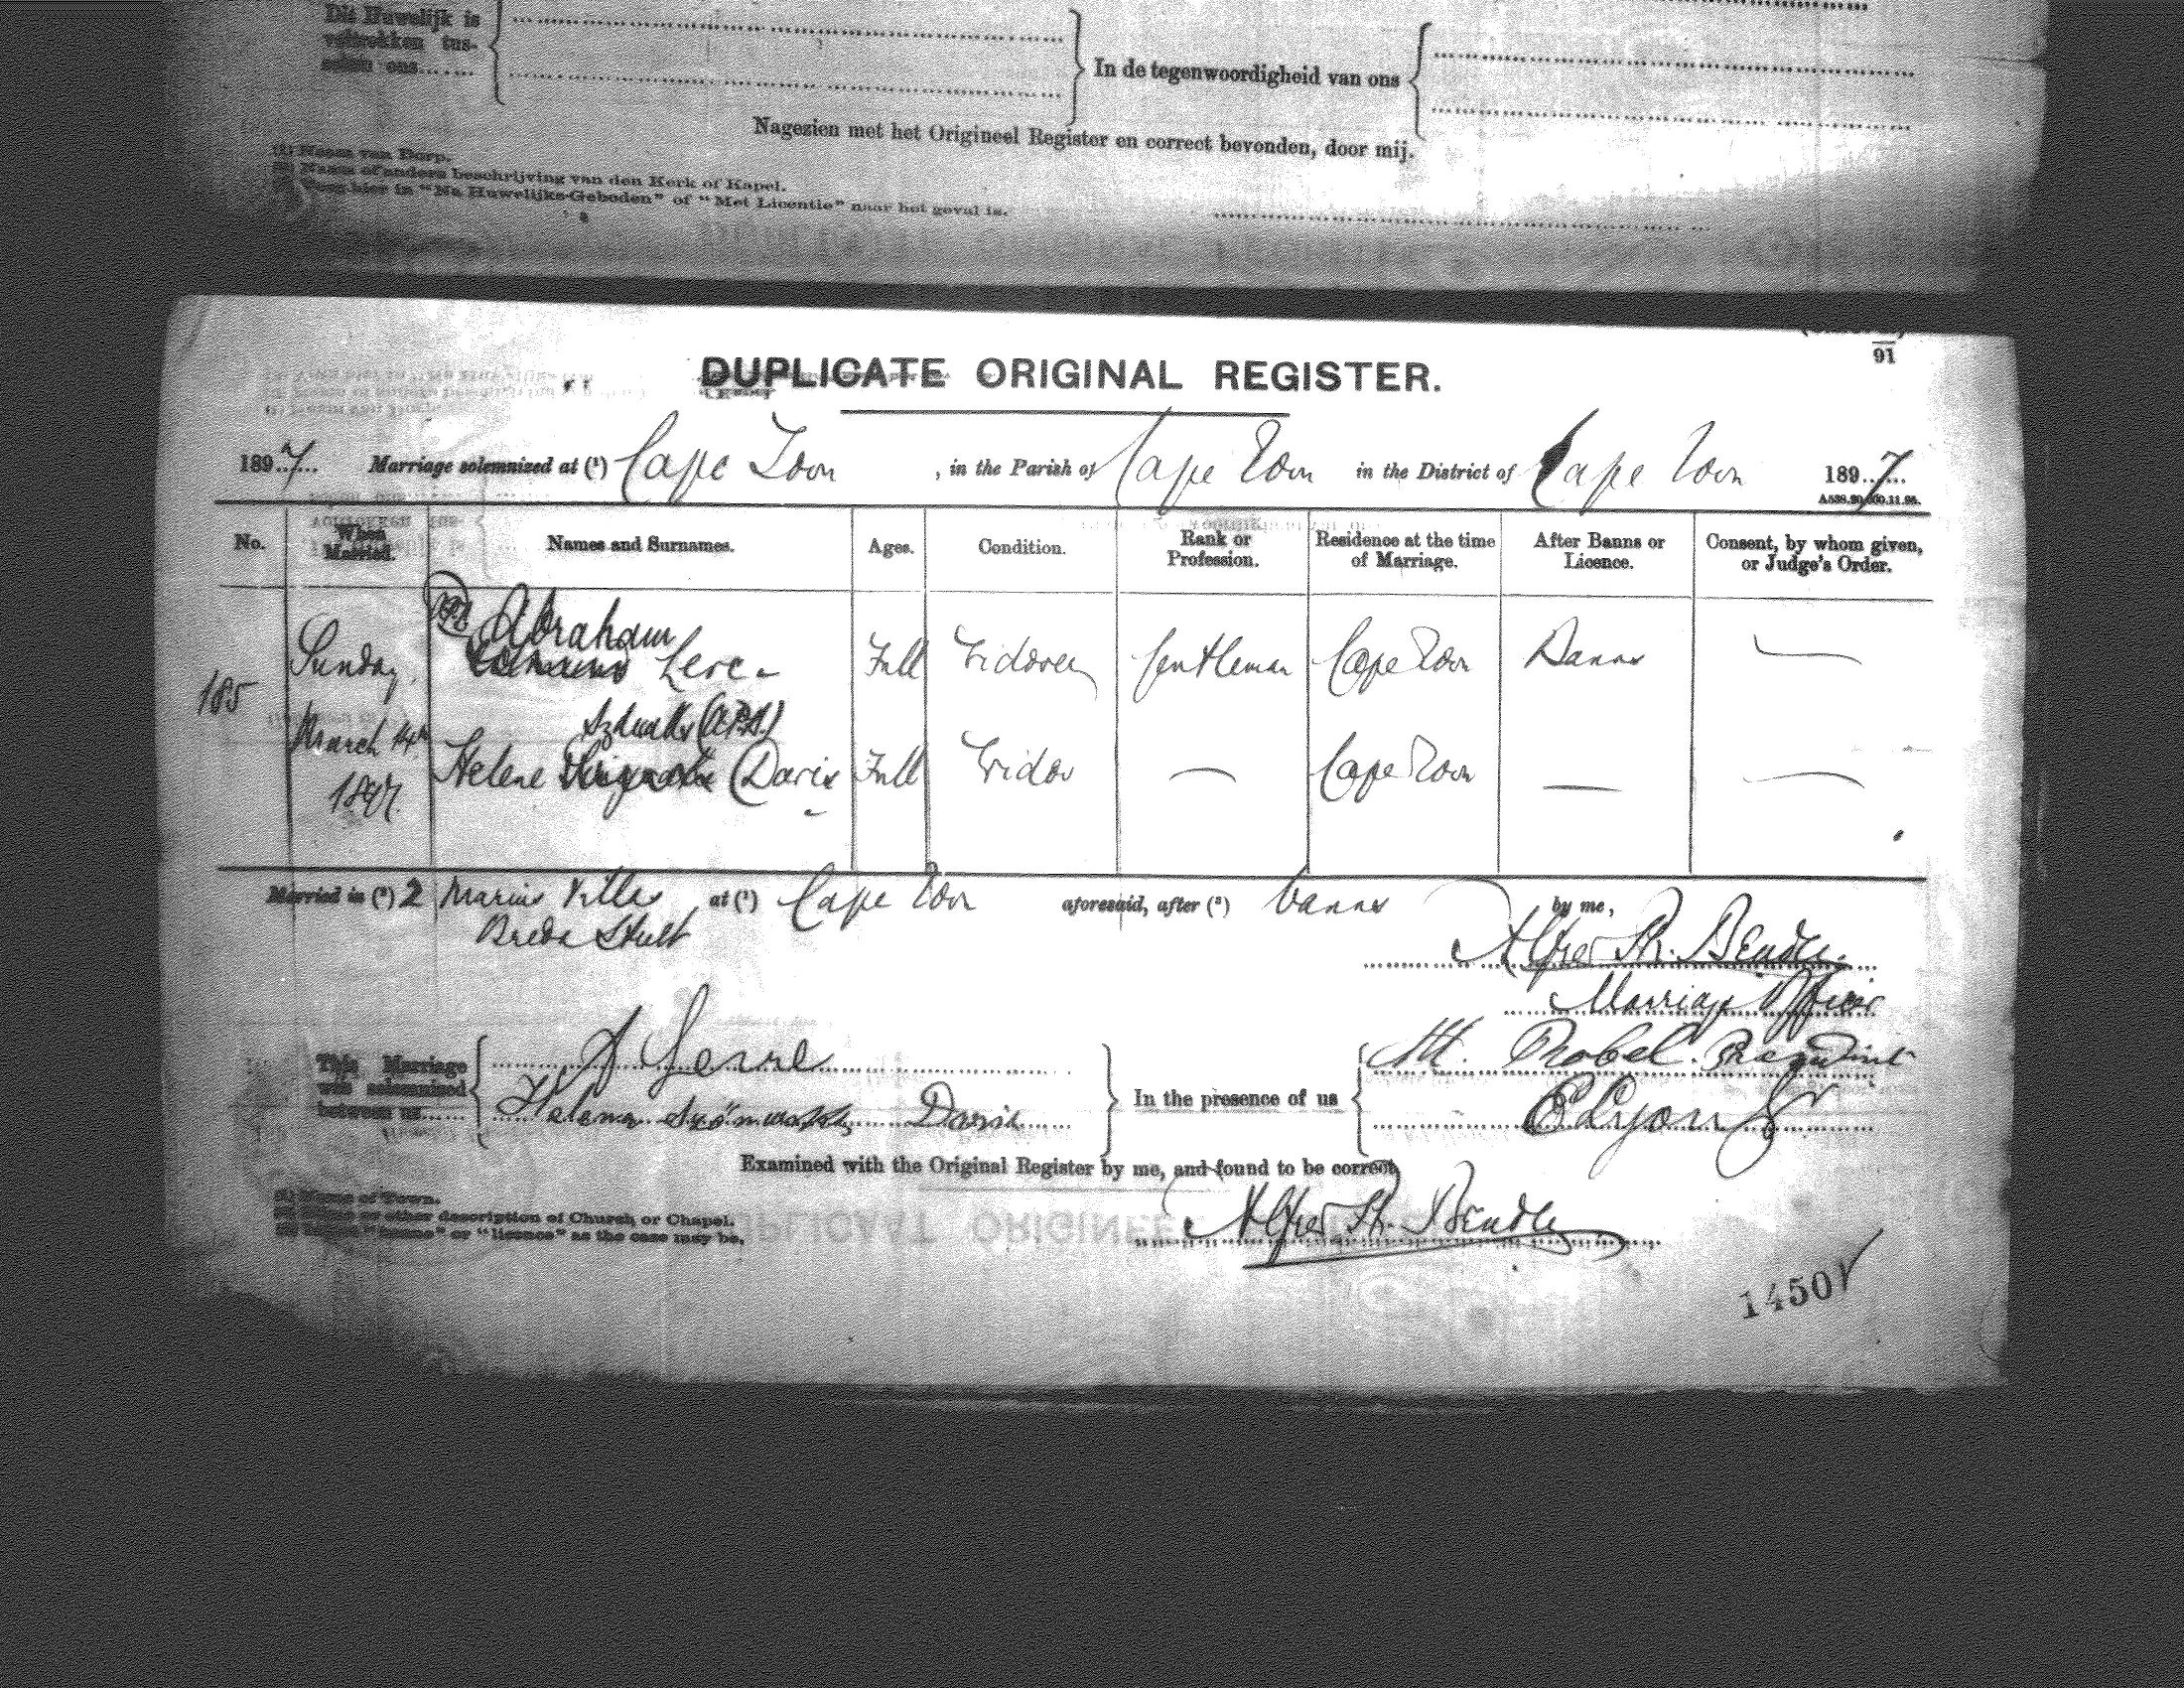 Dit Huwelijk is
voltrokken tus-
schen ons.......
In de tegenwoordigheid van ons
Nagezien met het Origineel Register en correct bevonden, door mij.
(1) Naam van Dorp.
(2) Naam of andere beschrijving van den Kerk of Kapel.
(3) Voeg hier in "Na Huwelijks-Geboden" of "Met Licentie" naar het geval is.
91
DUPLICATE ORIGINAL REGISTER.
1897 Marriage solemnized at (¹) Cape Town, in the Parish of Cape Town in the District of Cape Town 1897
No. When Married. Names and Surnames. Ages. Condition. Rank or Profession. Residence at the time of Marriage. After Banns or Licence. Consent, by whom given, or Judge's Order.
Abraham
185 Sunday Full Widower Gentleman Cape Town Banns —
March 14th
1897 Helene (Davis Full Widow — Cape Town — —
Married in (²) 2 Marius Villas at (¹) Cape Town aforesaid, after (³) banns by me,
Breda Street
Alfred P. Bender
Marriage Officer
This Marriage
was solemnized
between us......
Davis
In the presence of us
Examined with the Original Register by me, and found to be correct,
(1) Name of Town.
(2) Name or other description of Church or Chapel.
(3) Insert "banns" or "licence" as the case may be.
Alfred P. Bender
1450